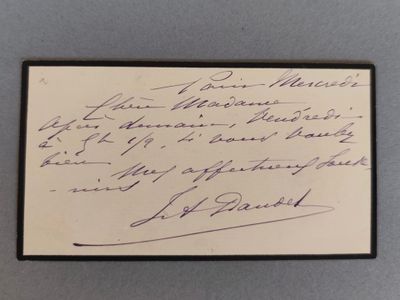 Paris Mercredi
Chère Madame
après demain, Vendredi
à 5h 1/2, si vous voulez
bien
Mes affectueux souve-
-nirs
JA Daudet